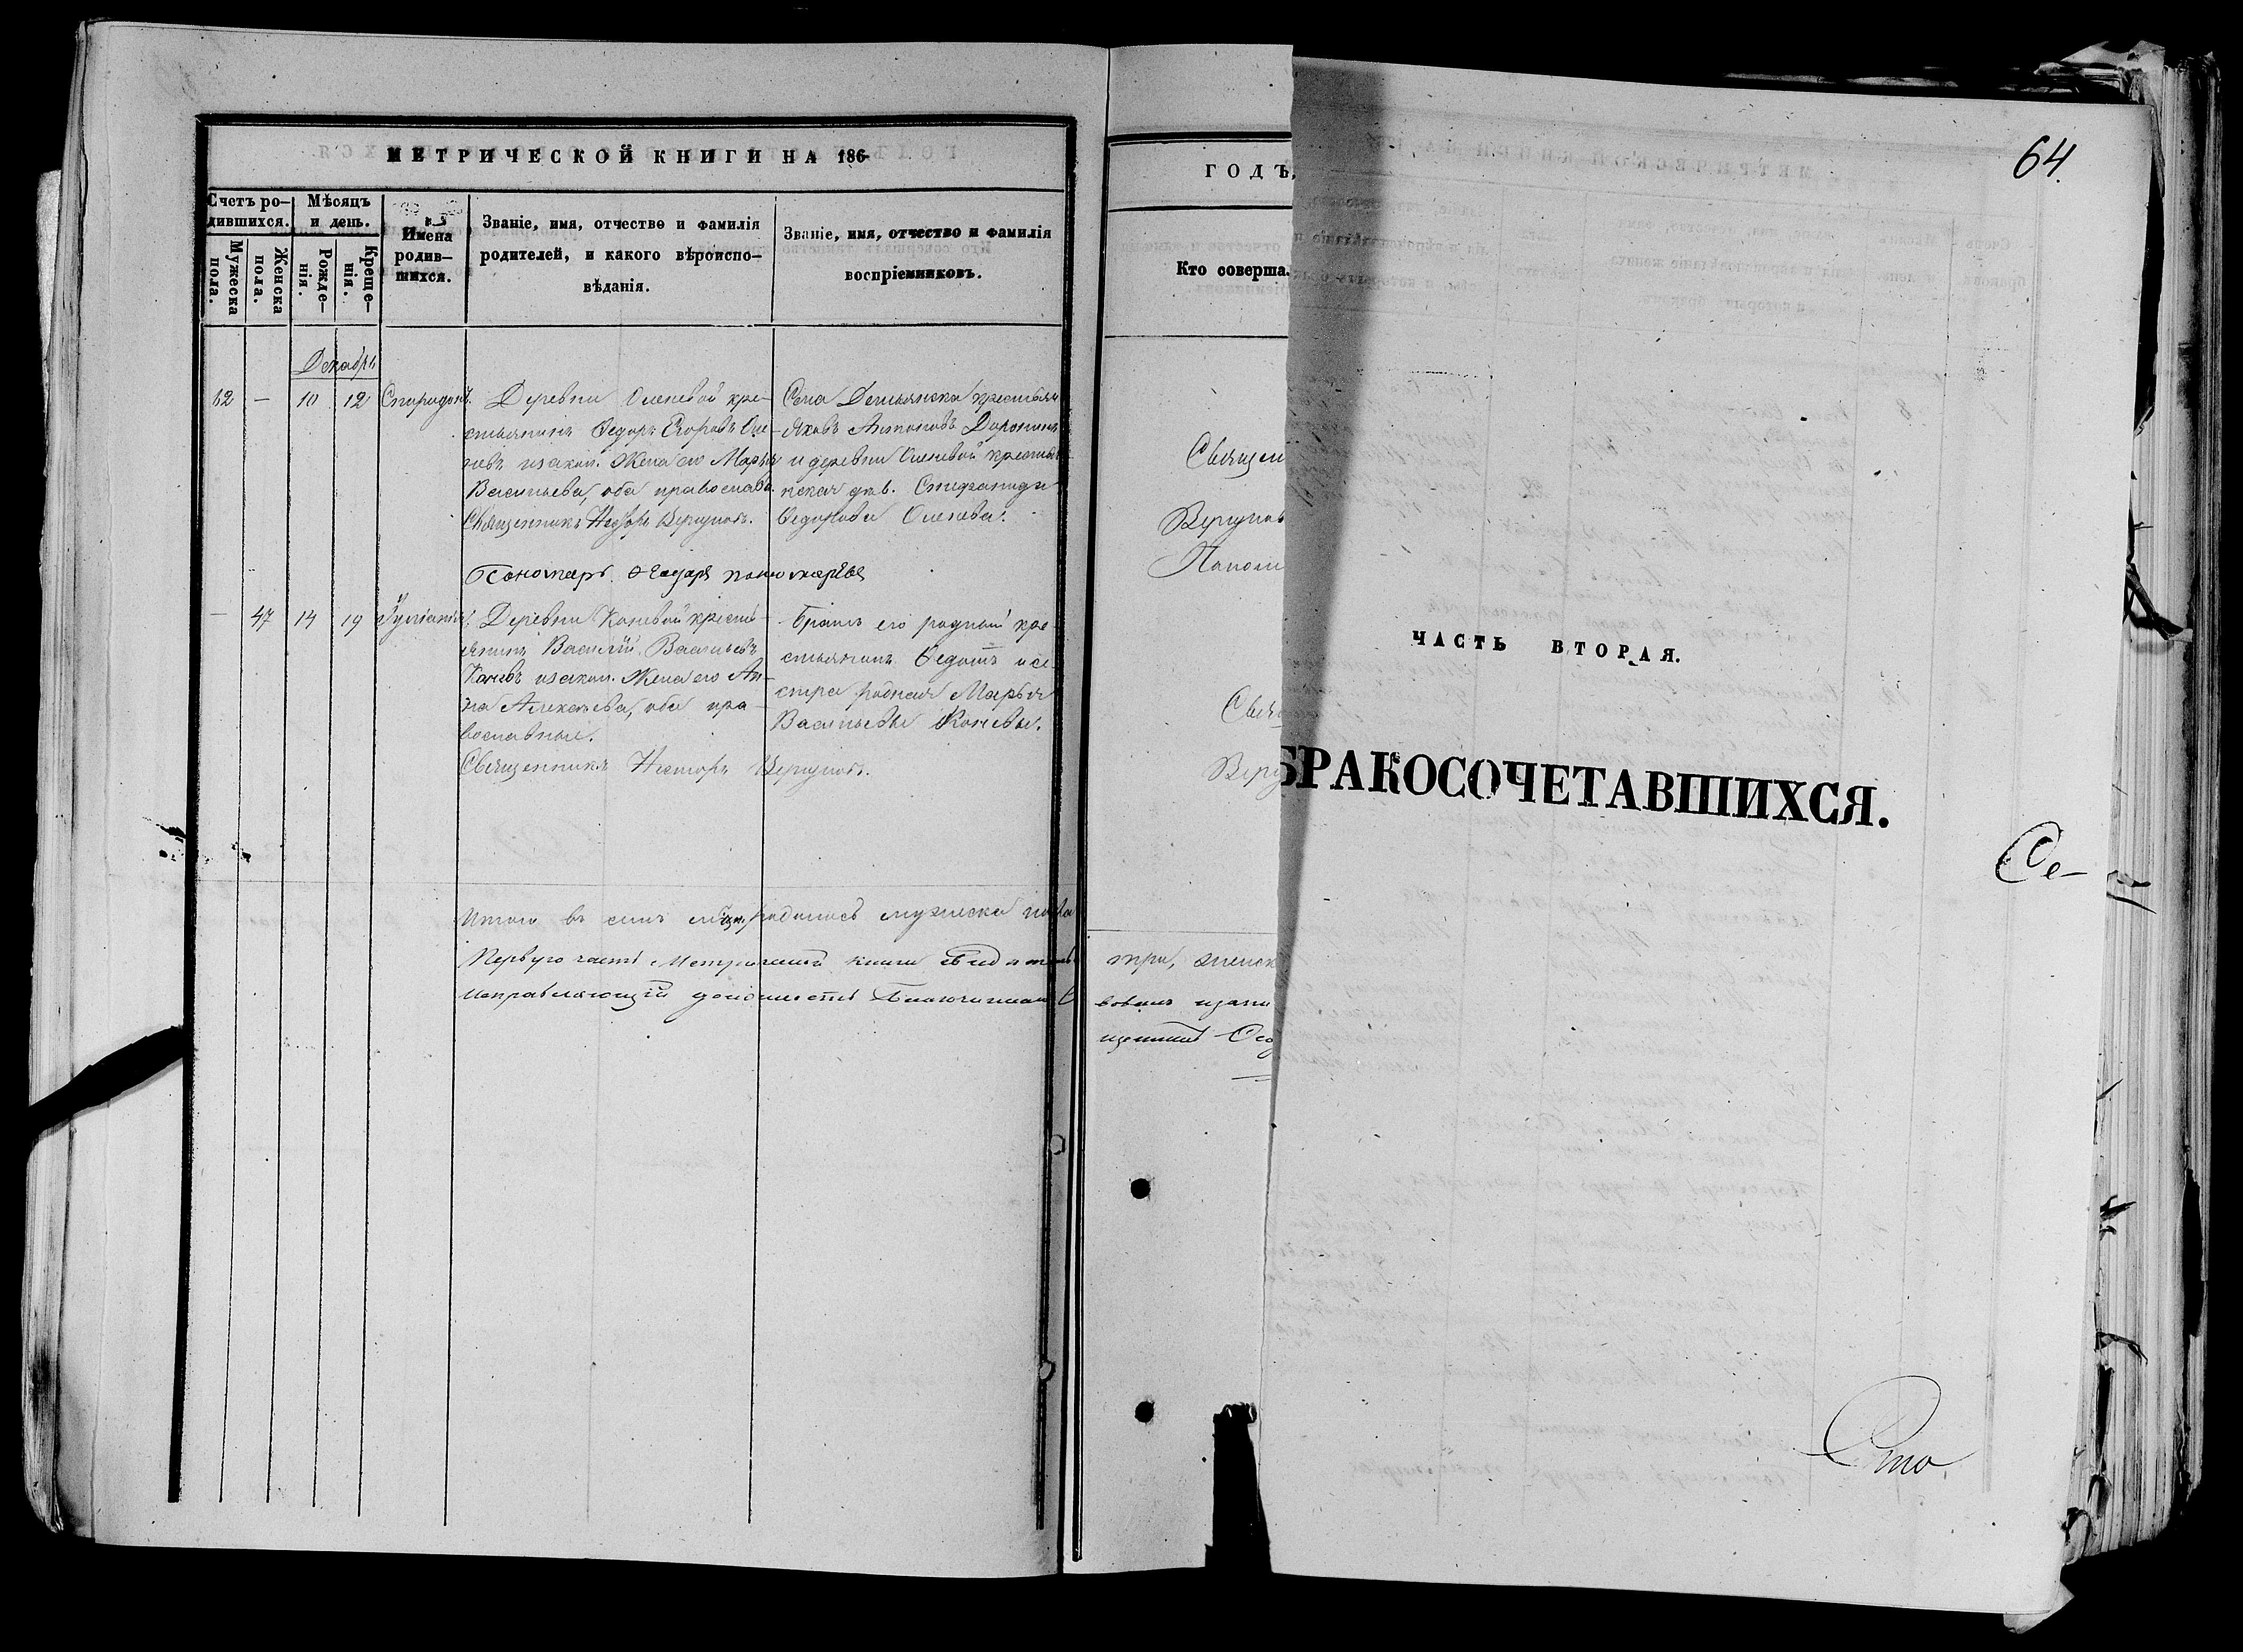 МЕТРИЧЕСКОЙ КНИГИ НА 186
Счетъ ро-
дившихся.
Мужеска
пола.
Женска
пола.
Мѣсяцъ
и день.
Рожде-
нія.
Креще-
нія.
Имена
родив-
шихся.
Званіе, имя, отчество и фамилія
родителей, и какого вѣроиспо-
вѣданія.
Званіе, имя, отчество и фамилія
воспріемниковъ.
Декабрь
62 — 10 12 Спиридонъ.
Деревни Оленевой кре-
стьянинъ Ѳедоръ Егоровъ Оле-
невъ и закон. жена его Марья
Васильева, оба православн.
Священникъ Несторъ Вергуновъ.
Села Демьянска крестьян.
Яковъ Антоновъ Доронинъ
и деревни Оленевой крестья-
нская дѣв. Стефанида
Ѳедорова Оленева.
Пономарь
— 47 14 19 Іуліанія.
Деревни Коневой кресть-
янинъ Василій Васильевъ
Коневъ и закон. жена его Ан-
на Алексѣева, оба пра-
вославные.
Священникъ Несторъ Вергуновъ.
Братъ его родный кре-
стьянинъ Ѳедотъ и се-
стра родная Марья
Васильевы Коневы.
Итого въ семъ мѣсяцѣ родилось мужеска пола
Первую часть Метрической книги свидѣтельст
Исправляющій должность Благочиннаго С
ГОДЪ,
Кто соверша
Священ
Вергунов
Поном
Свящ
Верг
три, женск
вовалъ
щенникъ
64.
ЧАСТЬ ВТОРАЯ.
БРАКОСОЧЕТАВШИХСЯ.
Се-